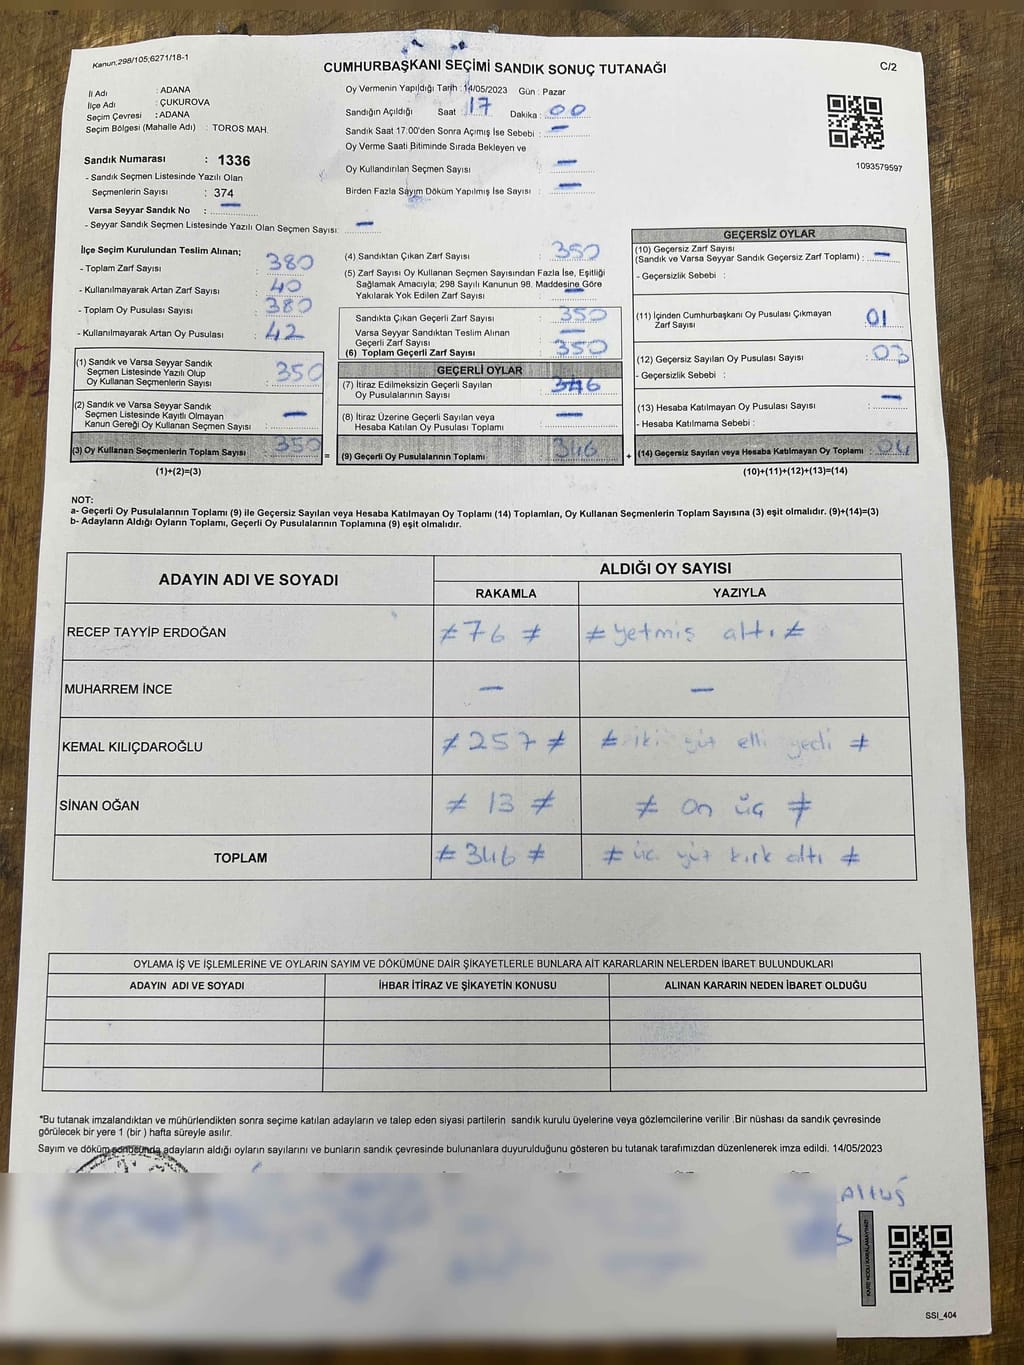 Kanun,298/105,6271/18-1
CUMHURBAŞKANI SEÇİMİ SANDIK SONUÇ TUTANAĞI
C/2
İl Adı : ADANA
İlçe Adı : ÇUKUROVA
Seçim Çevresi : ADANA
Seçim Bölgesi (Mahalle Adı) : TOROS MAH.
Sandık Numarası : 1336
- Sandık Seçmen Listesinde Yazılı Olan
Seçmenlerin Sayısı : 374
Varsa Seyyar Sandık No : —
- Seyyar Sandık Seçmen Listesinde Yazılı Olan Seçmen Sayısı: —
Oy Vermenin Yapıldığı Tarih : 14/05/2023 Gün : Pazar
Sandığın Açıldığı Saat 17 Dakika : 00
Sandık Saat 17:00'den Sonra Açımış İse Sebebi : —
Oy Verme Saati Bitiminde Sırada Bekleyen ve
Oy Kullandırılan Seçmen Sayısı : —
Birden Fazla Sayım Döküm Yapılmış İse Sayısı : —
1093579597
İlçe Seçim Kurulundan Teslim Alınan;
- Toplam Zarf Sayısı : 380
- Kullanılmayarak Artan Zarf Sayısı : 40
- Toplam Oy Pusulası Sayısı : 380
- Kullanılmayarak Artan Oy Pusulası : 42
(1) Sandık ve Varsa Seyyar Sandık
Seçmen Listesinde Yazılı Olup
Oy Kullanan Seçmenlerin Sayısı : 350
(2) Sandık ve Varsa Seyyar Sandık
Seçmen Listesinde Kayıtlı Olmayan
Kanun Gereği Oy Kullanan Seçmen Sayısı : —
(3) Oy Kullanan Seçmenlerin Toplam Sayısı : 350
(1)+(2)=(3)
(4) Sandıktan Çıkan Zarf Sayısı : 350
(5) Zarf Sayısı Oy Kullanan Seçmen Sayısından Fazla İse, Eşitliği
Sağlamak Amacıyla; 298 Sayılı Kanunun 98. Maddesine Göre
Yakılarak Yok Edilen Zarf Sayısı : —
Sandıkta Çıkan Geçerli Zarf Sayısı : 350
Varsa Seyyar Sandıktan Teslim Alınan
Geçerli Zarf Sayısı : —
(6) Toplam Geçerli Zarf Sayısı : 350
GEÇERLİ OYLAR
(7) İtiraz Edilmeksizin Geçerli Sayılan
Oy Pusulalarının Sayısı : 346
(8) İtiraz Üzerine Geçerli Sayılan veya
Hesaba Katılan Oy Pusulası Toplamı : —
= (9) Geçerli Oy Pusulalarının Toplamı : 346 +
GEÇERSİZ OYLAR
(10) Geçersiz Zarf Sayısı
(Sandık ve Varsa Seyyar Sandık Geçersiz Zarf Toplamı) : —
- Geçersizlik Sebebi :
(11) İçinden Cumhurbaşkanı Oy Pusulası Çıkmayan
Zarf Sayısı : 01
(12) Geçersiz Sayılan Oy Pusulası Sayısı : 03
- Geçersizlik Sebebi :
(13) Hesaba Katılmayan Oy Pusulası Sayısı : —
- Hesaba Katılmama Sebebi :
(14) Geçersiz Sayılan veya Hesaba Katılmayan Oy Toplamı : 04
(10)+(11)+(12)+(13)=(14)
NOT:
a- Geçerli Oy Pusulalarının Toplamı (9) ile Geçersiz Sayılan veya Hesaba Katılmayan Oy Toplamı (14) Toplamları, Oy Kullanan Seçmenlerin Toplam Sayısına (3) eşit olmalıdır. (9)+(14)=(3)
b- Adayların Aldığı Oyların Toplamı, Geçerli Oy Pusulalarının Toplamına (9) eşit olmalıdır.
ADAYIN ADI VE SOYADI
ALDIĞI OY SAYISI
RAKAMLA YAZIYLA
RECEP TAYYİP ERDOĞAN ≠ 76 ≠ ≠ yetmiş altı ≠
MUHARREM İNCE — —
KEMAL KILIÇDAROĞLU ≠ 257 ≠ ≠ iki yüz elli yedi ≠
SİNAN OĞAN ≠ 13 ≠ ≠ on üç ≠
TOPLAM ≠ 346 ≠ ≠ üç yüz kırk altı ≠
OYLAMA İŞ VE İŞLEMLERİNE VE OYLARIN SAYIM VE DÖKÜMÜNE DAİR ŞİKAYETLERLE BUNLARA AİT KARARLARIN NELERDEN İBARET BULUNDUKLARI
ADAYIN ADI VE SOYADI İHBAR İTİRAZ VE ŞİKAYETİN KONUSU ALINAN KARARIN NEDEN İBARET OLDUĞU
*Bu tutanak imzalandıktan ve mühürlendikten sonra seçime katılan adayların ve talep eden siyasi partilerin sandık kurulu üyelerine veya gözlemcilerine verilir .Bir nüshası da sandık çevresinde
görülecek bir yere 1 (bir ) hafta süreyle asılır.
Sayım ve döküm sonucunda adayların aldığı oyların sayılarını ve bunların sandık çevresinde bulunanlara duyurulduğunu gösteren bu tutanak tarafımızdan düzenlenerek imza edildi. 14/05/2023
SSI_404